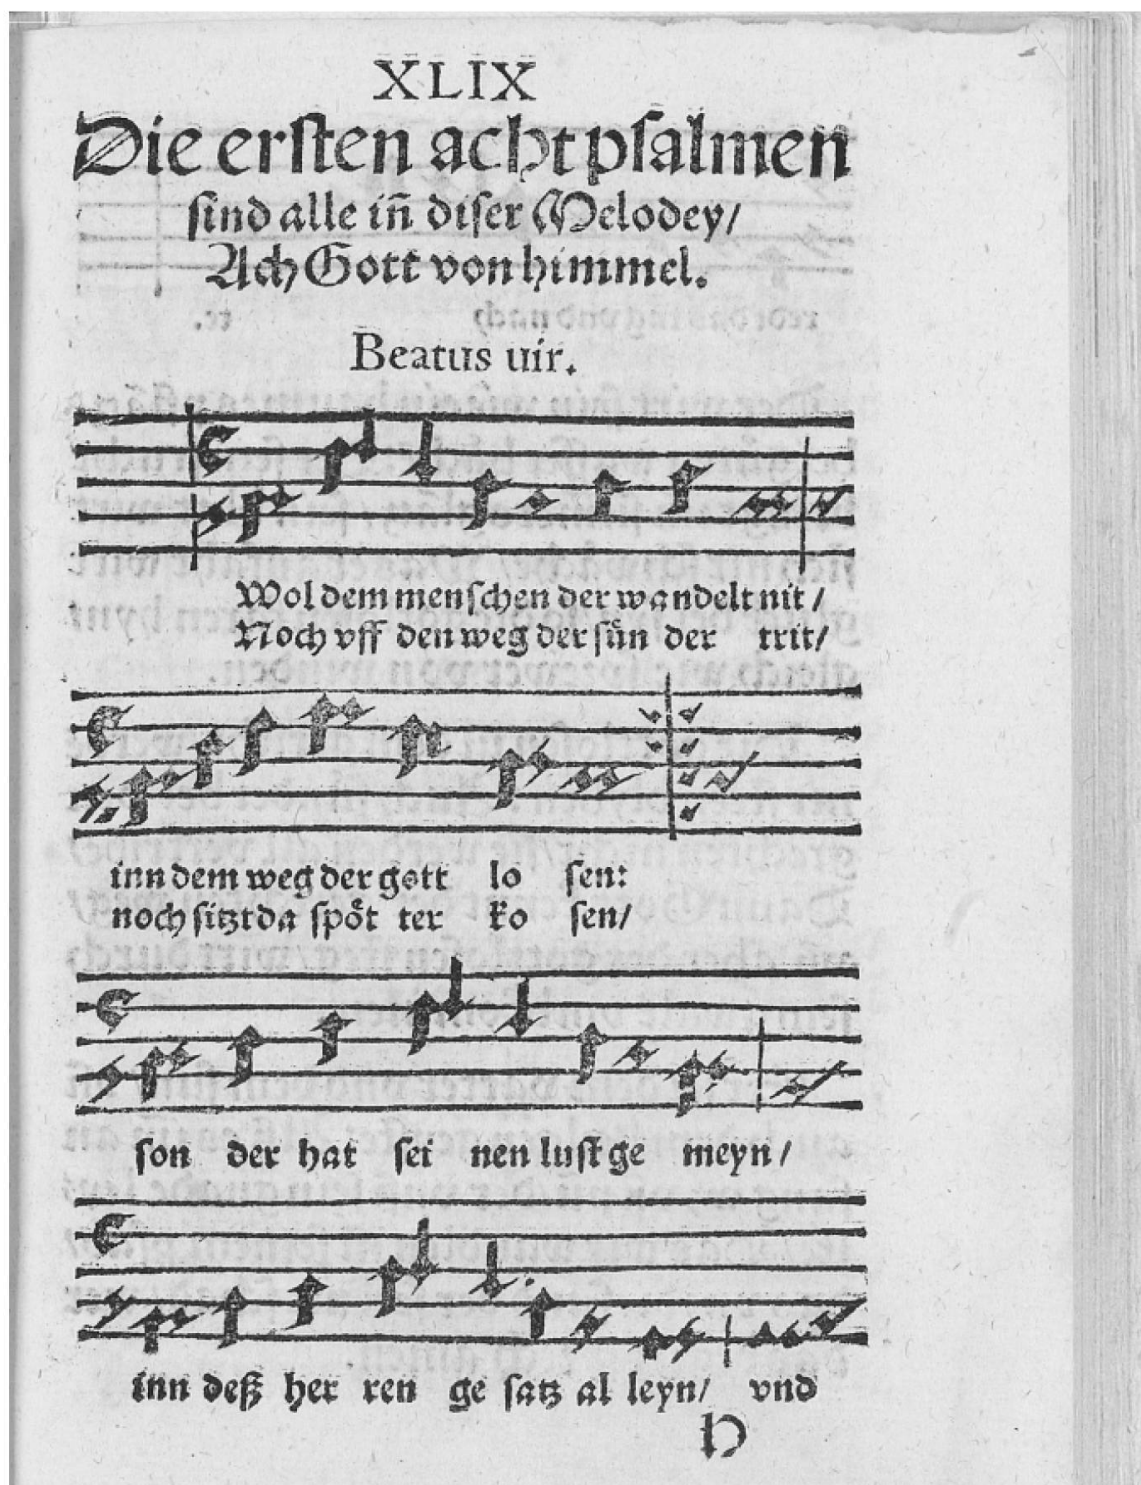 XLIX
Die ersten acht psalmen
sind alle iñ diser Melodey/
Ach Gott von himmel.
Beatus uir.
Wol dem menschen der wandelt nit/
Noch vff den weg der sůn der trit/
inn dem weg der gott lo sen:
noch sitzt da spoͤt ter ko sen/
son der hat sei nen lust ge meyn/
inn deß her ren ge satz al leyn/ vnd